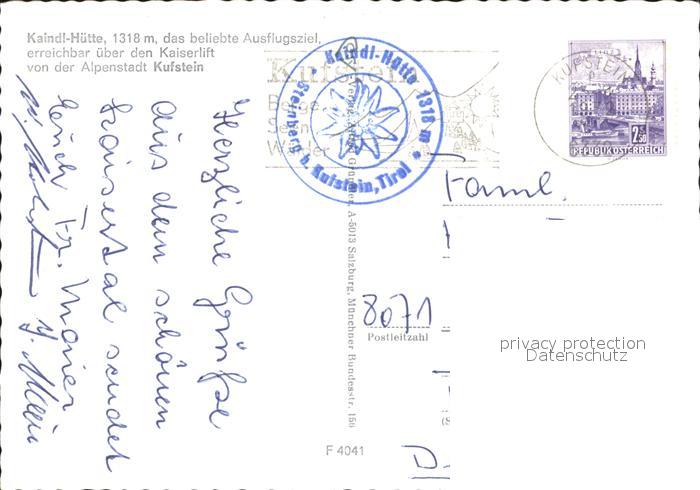 Kaindl-Hütte, 1318 m, das beliebte Ausflugsziel,
erreichbar über den Kaiserlift
von der Alpenstadt Kufstein
Herzliche Grüße
aus dem schönen
Kaisertal sendet
Euch Fr. Maier
Kaindl-Hütte 1318 m
Steinberg b. Kufstein, Tirol
Kufstein
KUFSTEIN
2.50
REPUBLIK ÖSTERREICH
Faml.
8071
Postleitzahl
A-5013 Salzburg, Münchner Bundesstr. 156
F 4041
privacy protection
Datenschutz